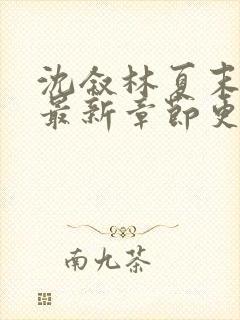 沈叙林夏末
最新章节更
南九茶